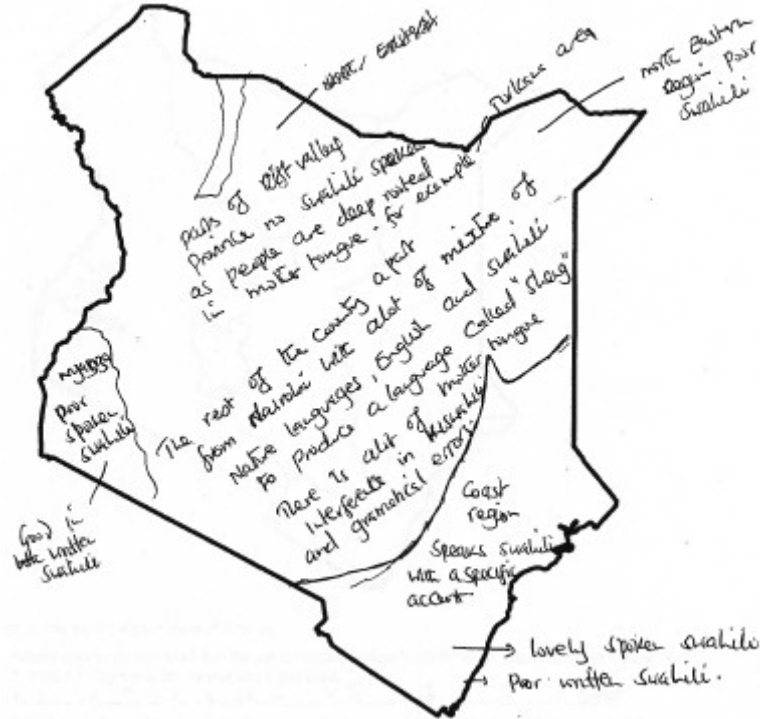 north Eastern
region poor
swahili
parts of Rift valley
province no swahili spoken
as people are deep rooted
in mother tongue - for example Turkana area
The rest of the county apart
from Nairobi with alot of mixture of
Native languages, English and swahili
to produce a language called "sheng"
There is alot of mother tongue
interference in kiswahili
and gramatical errors.
Nyanza
poor
spoken
swahili
Good in
written
swahili
Coast
region
Speaks swahili
with a specific
accent.
→ lovely spoken swahili
→ Poor written swahili.